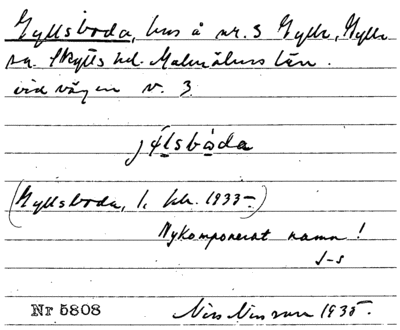 Gyllsboda, hus å nr. 3 Gylle, Gylle
sn. Skytts hd. Malmöhus län.
vid vägen v. 3.
jɸlsbåda
(Gyllsboda, l. kb. 1933-)
Nykomponerat namn!
J-s
Nr 5808
Nils Nilsson 1935.